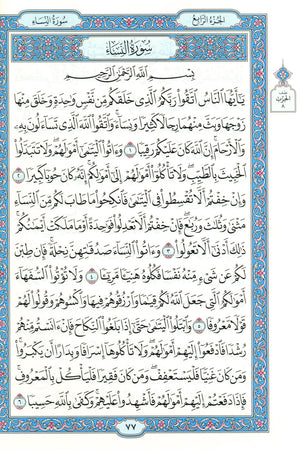 سُورَةُ النِّسَاءِ
الجُزْءُ الرَّابِعُ
سُورَةُ النِّسَاءِ
بِسْمِ اللَّهِ الرَّحْمَٰنِ الرَّحِيمِ
يَٰٓأَيُّهَا النَّاسُ اتَّقُوا رَبَّكُمُ الَّذِي خَلَقَكُم مِّن نَّفْسٍ وَٰحِدَةٍ وَخَلَقَ مِنْهَا
زَوْجَهَا وَبَثَّ مِنْهُمَا رِجَالًا كَثِيرًا وَنِسَآءً وَاتَّقُوا اللَّهَ الَّذِي تَسَآءَلُونَ بِهِۦ
وَالْأَرْحَامَ إِنَّ اللَّهَ كَانَ عَلَيْكُمْ رَقِيبًا ١ وَءَاتُوا الْيَتَٰمَىٰٓ أَمْوَٰلَهُمْ وَلَا تَتَبَدَّلُوا
الْخَبِيثَ بِالطَّيِّبِ وَلَا تَأْكُلُوٓا أَمْوَٰلَهُمْ إِلَىٰٓ أَمْوَٰلِكُمْ إِنَّهُۥ كَانَ حُوبًا كَبِيرًا ٢
وَإِنْ خِفْتُمْ أَلَّا تُقْسِطُوا فِي الْيَتَٰمَىٰ فَانكِحُوا مَا طَابَ لَكُم مِّنَ النِّسَآءِ
مَثْنَىٰ وَثُلَٰثَ وَرُبَٰعَ فَإِنْ خِفْتُمْ أَلَّا تَعْدِلُوا فَوَٰحِدَةً أَوْ مَا مَلَكَتْ أَيْمَٰنُكُمْ
ذَٰلِكَ أَدْنَىٰٓ أَلَّا تَعُولُوا ٣ وَءَاتُوا النِّسَآءَ صَدُقَٰتِهِنَّ نِحْلَةً فَإِن طِبْنَ
لَكُمْ عَن شَيْءٍ مِّنْهُ نَفْسًا فَكُلُوهُ هَنِيٓـًٔا مَّرِيٓـًٔا ٤ وَلَا تُؤْتُوا السُّفَهَآءَ
أَمْوَٰلَكُمُ الَّتِي جَعَلَ اللَّهُ لَكُمْ قِيَٰمًا وَارْزُقُوهُمْ فِيهَا وَاكْسُوهُمْ وَقُولُوا لَهُمْ
قَوْلًا مَّعْرُوفًا ٥ وَابْتَلُوا الْيَتَٰمَىٰ حَتَّىٰٓ إِذَا بَلَغُوا النِّكَاحَ فَإِنْ ءَانَسْتُم مِّنْهُمْ
رُشْدًا فَادْفَعُوٓا إِلَيْهِمْ أَمْوَٰلَهُمْ وَلَا تَأْكُلُوهَآ إِسْرَافًا وَبِدَارًا أَن يَكْبَرُوا
وَمَن كَانَ غَنِيًّا فَلْيَسْتَعْفِفْ وَمَن كَانَ فَقِيرًا فَلْيَأْكُلْ بِالْمَعْرُوفِ
فَإِذَا دَفَعْتُمْ إِلَيْهِمْ أَمْوَٰلَهُمْ فَأَشْهِدُوا عَلَيْهِمْ وَكَفَىٰ بِاللَّهِ حَسِيبًا ٦
٧٧